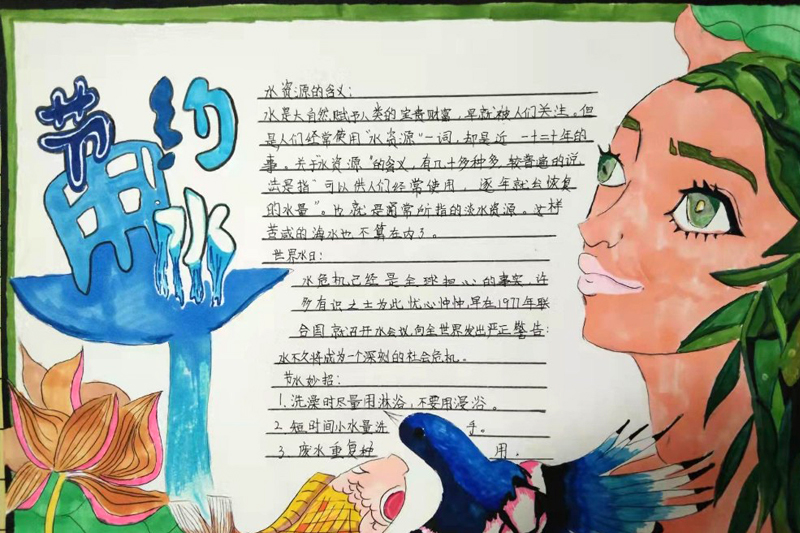 节约
用水
水资源的含义:
水是大自然赋予人类的宝贵财富，早就被人们关注。但
是人们经常使用"水资源"一词，却是近一十二十年的
事。关于"水资源"的含义，有几十多种多，较普遍的说
法是指"可以供人们经常使用，逐年就会恢复
的水量"。也就是通常所指的淡水资源。这样
苦咸的海水也不算在内了。
世界水日:
水危机已经是全球担心的事实，许
多有识之士为此忧心忡忡，早在1977年联
合国就召开水会议，向全世界发出严正警告:
水不久将成为一个深刻的社会危机。
节水妙招:
1. 洗澡时尽量用淋浴，不要用浸浴。
2. 短时间小水量洗手。
3. 废水重复种用.